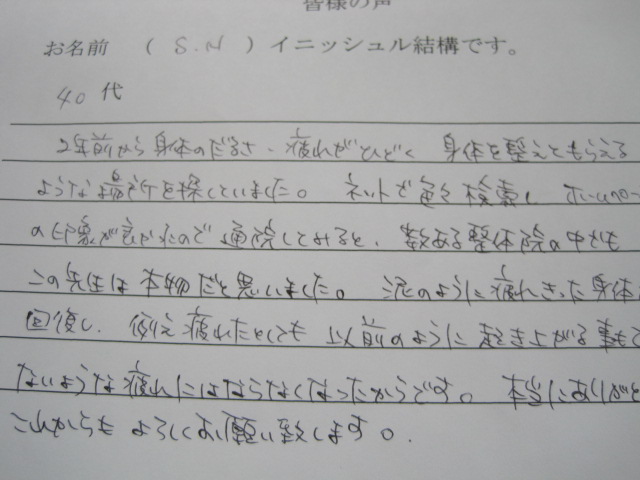 皆様の声
お名前 ( S.N ) イニッシュル結構です。
40代
2年前から身体のだるさ・疲れがひどく 身体を整えてもらえる
ような場所を探していました。 ネットで色々検索し ホームペー
の印象が良かったので通院してみると、数ある整体院の中でも
この先生は本物だと思いました。 泥のように疲れきった身体
回復し、例え疲れたとしても 以前のように起き上がる事も
ないような疲れにはならなくなったからです。 本当にありがと
これからもよろしくお願い致します。